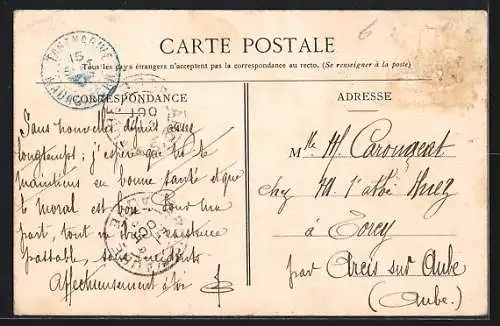 6
TANANARIVE
15
MADAGASCAR
CARTE POSTALE
Tous les pays étrangers n'acceptent pas la correspondance au recto. (Se renseigner à la poste)
CORRESPONDANCE
ADRESSE
Sans nouvelles depuis assez
longtemps ; j'espère que tu te
maintiens en bonne santé et que
le moral est bon. Pour ma
part, tout va bien, existence
passable, sans incidents.
Affectueusement à toi
Mlle M. Carougeat
chez M. l'abbé
à Torcy
par Arcis sur Aube
(Aube.)